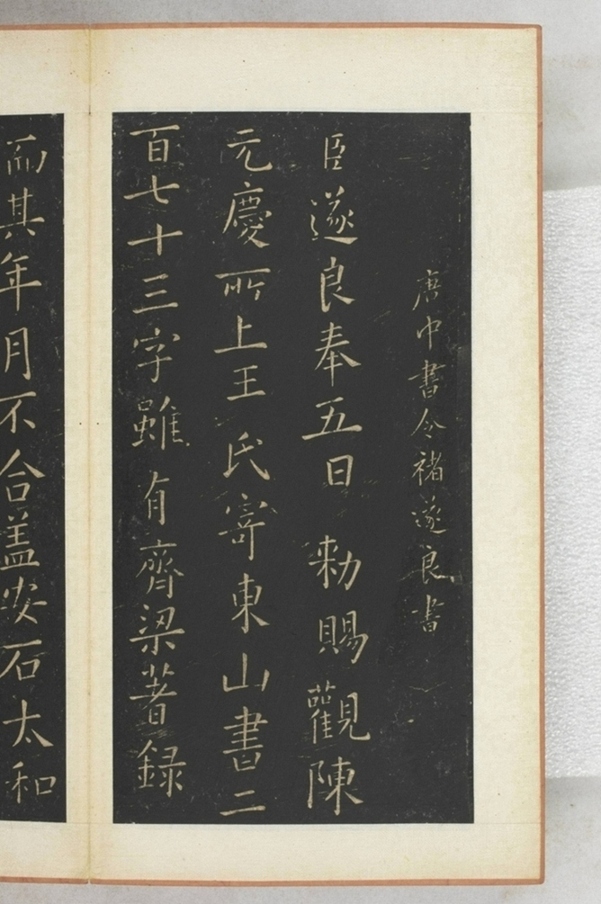 唐中書令褚遂良書
臣遂良奉五日 勑賜觀陳
元慶所上王氏寄東山書二
百七十三字雖有齊梁著錄
而其年月不合盖安石太和